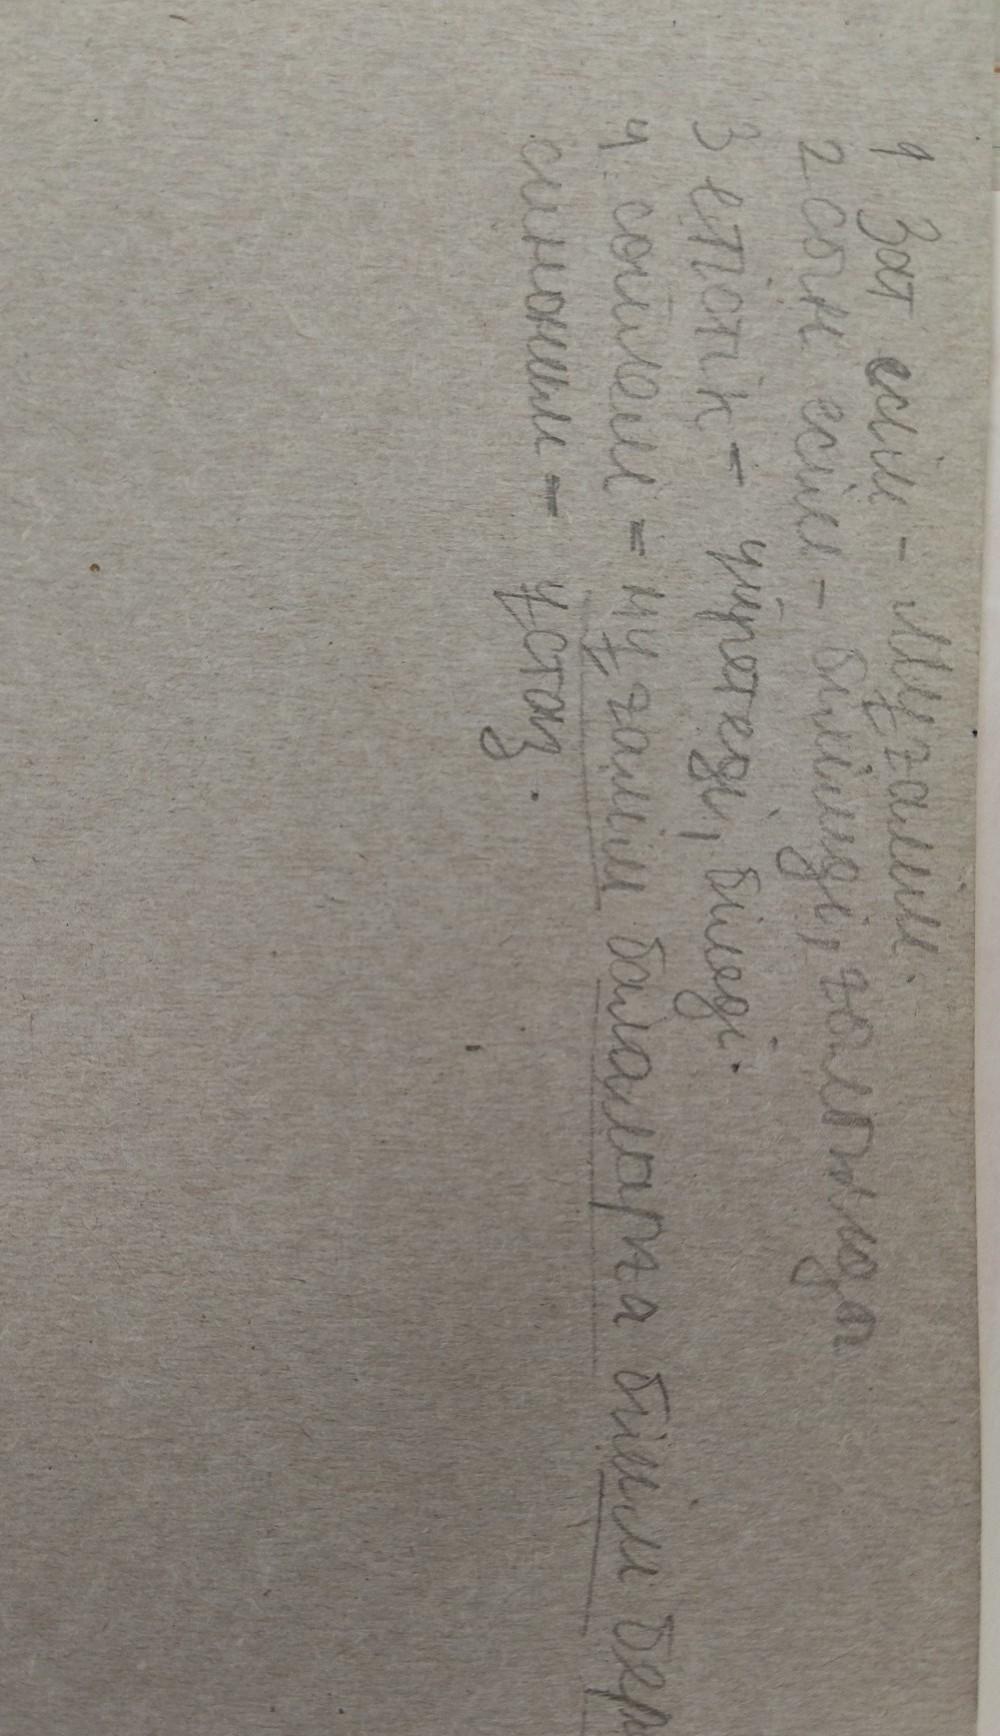 1 Зат есім - Мұғалім.
2 сын есім - білімді,
3 етістік - үйретеді, біледі.
4. сөйлем = мұғалім балаларға білім бер
синоним = ұстаз.